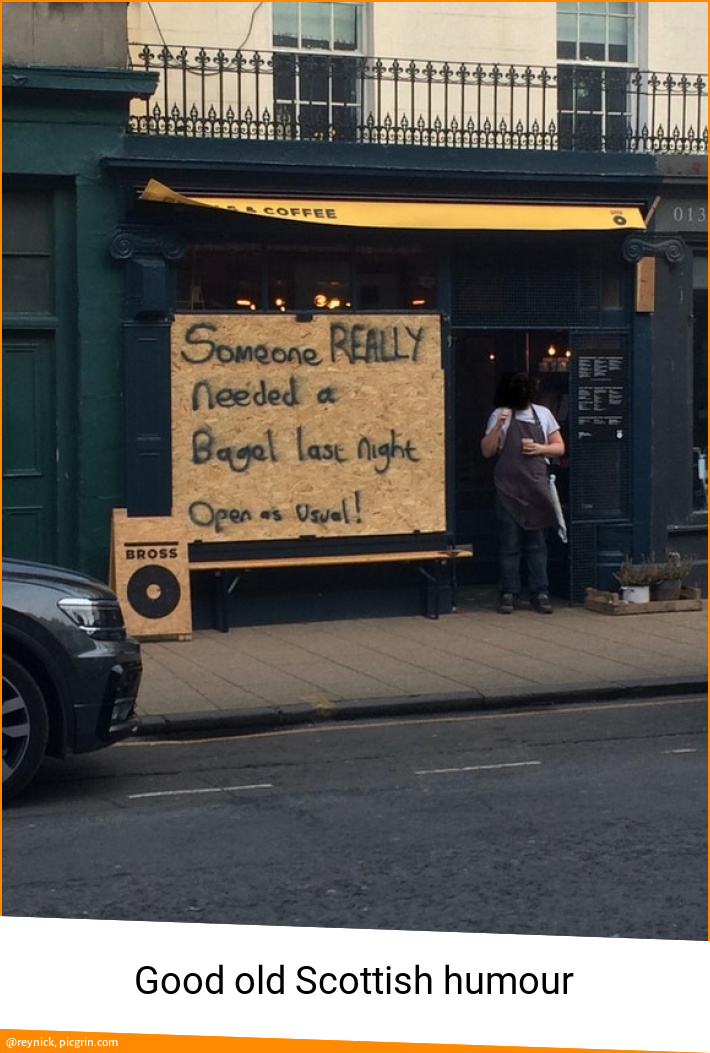 & COFFEE
013
Someone REALLY
needed a
Bagel last night
Open as Usual!
BROSS
Good old Scottish humour
@reynick, picgrin.com